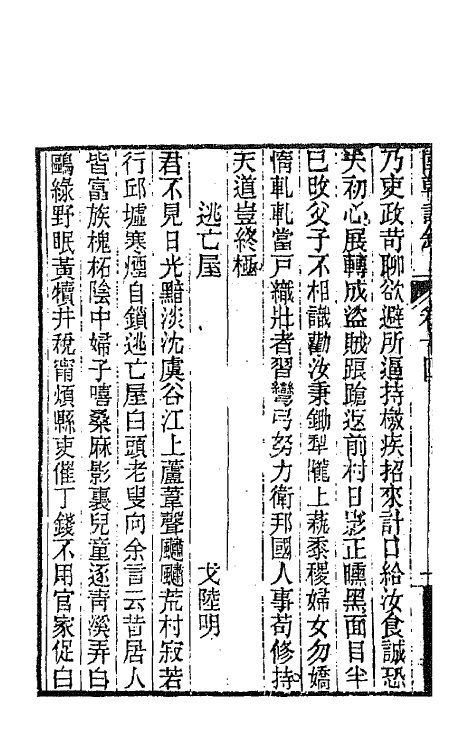 乃吏政苛聊欲避所逼持檄疾招來計口給汝食誠恐
失初心展轉成盜賊踉蹌返前村日影正曛黑面目半
已改父子不相識勸汝秉鋤犁隴上蓺黍稷婦女勿嬌
惰軋軋當戶織壯者習彎弓努力衛邦國人事苟修持
天道豈終極
逃亡屋 戈陸明
君不見日光黯淡沈虞谷江上蘆葦聲飀飀荒村寂若
行邱墟寒煙自鎖逃亡屋白頭老叟向余言云昔居人
皆富族槐柘陰中婦子嘻桑麻影裏兒童逐靑溪弄白
鷗綠野眠黃犢井稅甯煩縣吏催丁錢不用官家促白